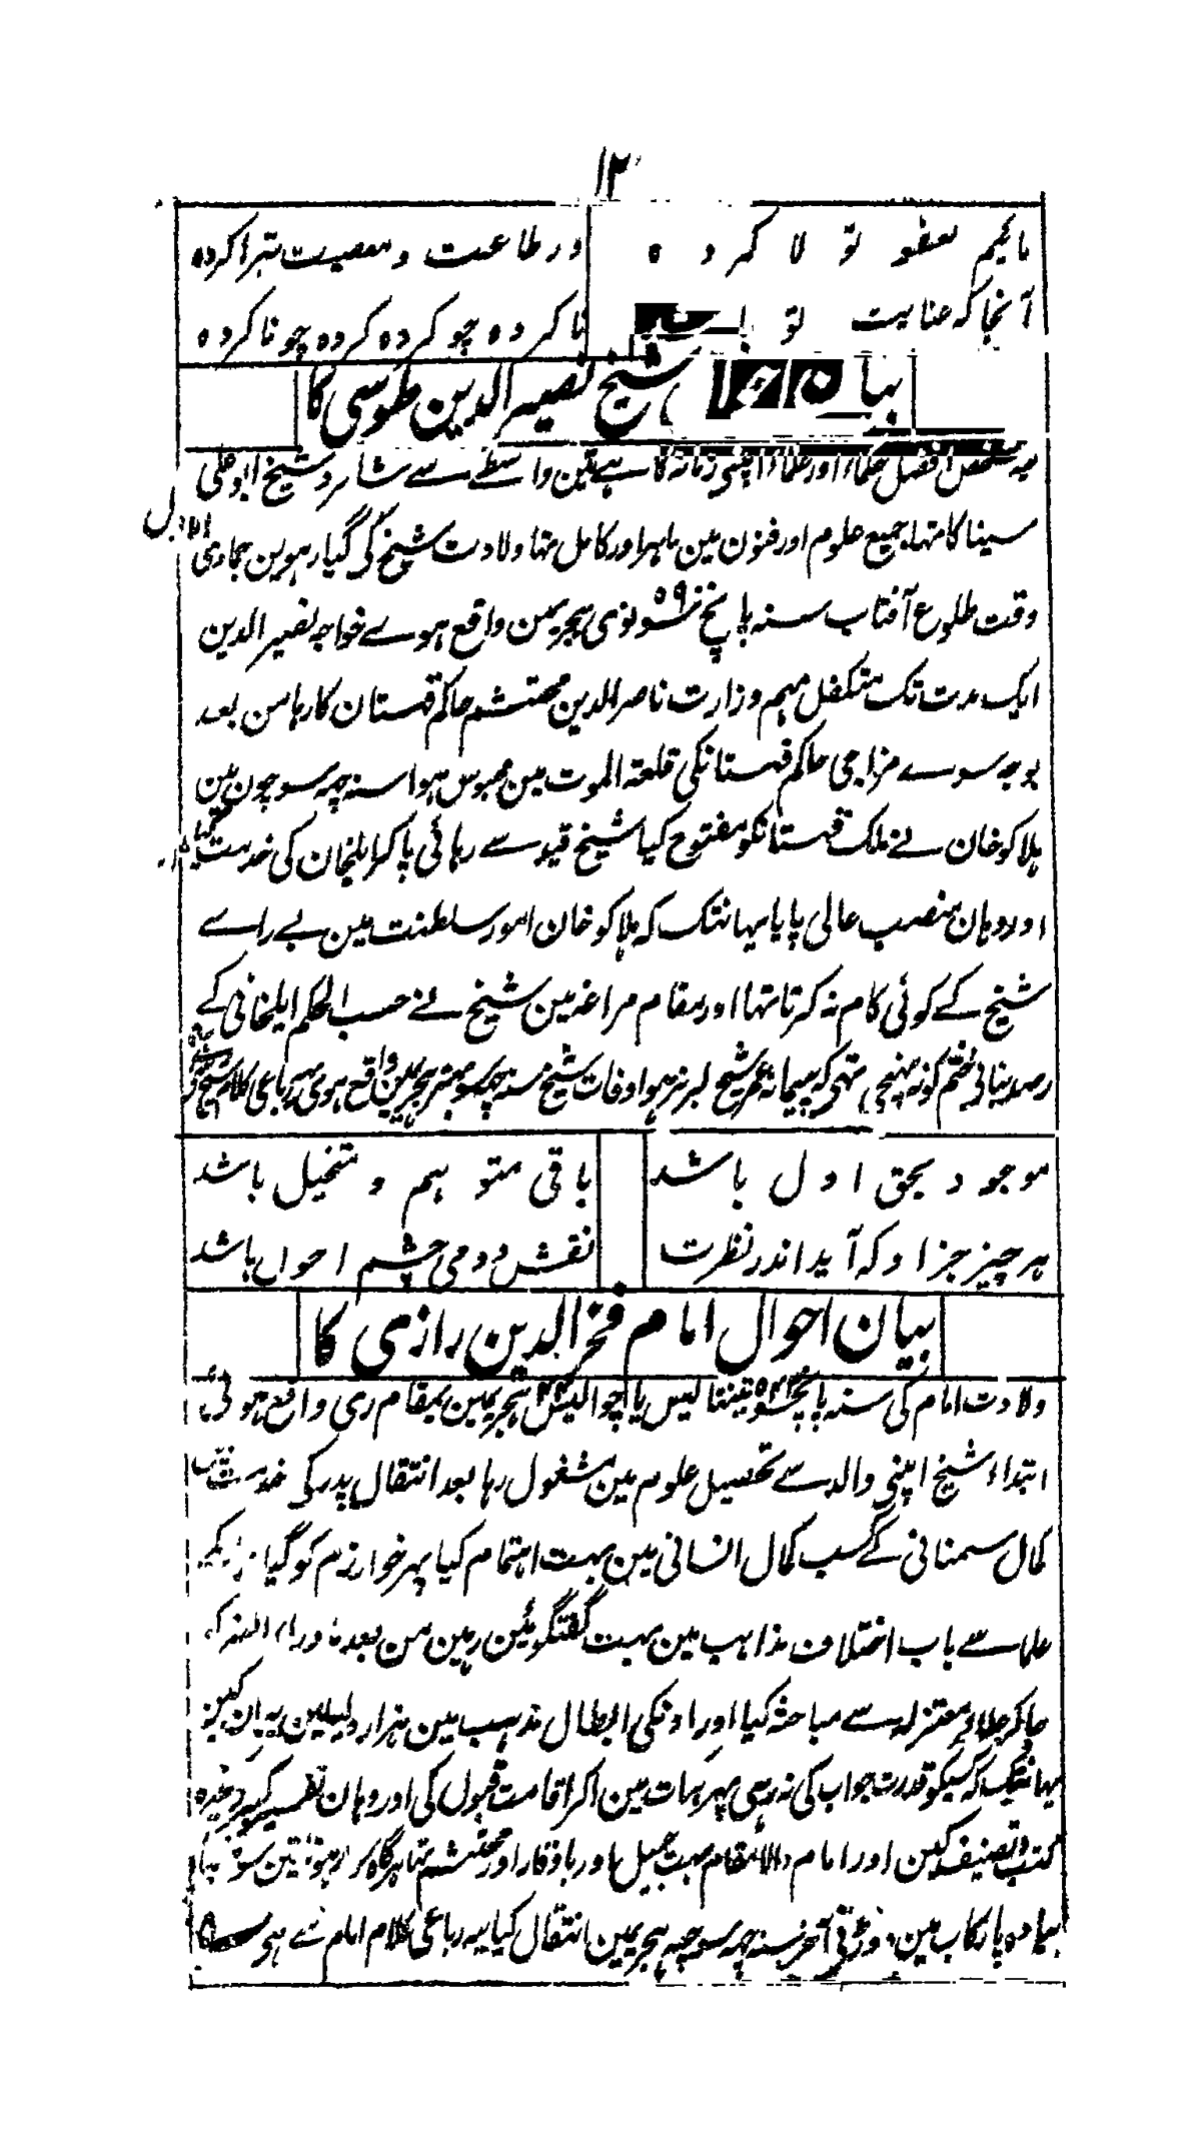 ۱۲
مائیم بعفو تو تولا کردہ
ورطاعت و معصیت تبرا کردہ
آنجا کہ عنایت تو باشد
ناکردہ چو کردہ کردہ چو ناکردہ
بیان شیخ نصیر الدین طوسی کا
یہ شخص افضل حکماء اور علماء اپنی زمانہ کا ہے تین واسطے سے شاگرد شیخ ابو علی
سینا کا تہا جمیع علوم اور فنون مین ماہر اور کامل تہا ولادت شیخ کی گیارہوین جمادی الاول
وقت طلوع آفتاب سنہ پانچ سو نوی ۵۹۰ ہجریمین واقع ہوے خواجہ نصیر الدین
ایک مدت تک متکفل مہم وزارت ناصر الدین محتشم حاکم قہستان کا رہا من بعد
بوجہ سوے مزاجی حاکم قہستانکی قلعۃ الموت مین محبوس ہوا سنہ چہہ سو چون مین
ہلاکو خان نے ملک قہستانکو مفتوح کیا شیخ قید سے رہائی پاکر ایلخان کی خدمت
اور وہان منصب عالی پایا یہانتک کہ ہلاکو خان امور سلطنت مین بے راے
شیخ کے کوئی کام نہ کرتا تہا اور مقام مراغہ مین شیخ نے حسب الحکم ایلخانی کے
رصد بنائی ختم کو نہ پہنچی تہی کہ پیمانہ عمر شیخ لبریز ہوا وفات شیخ سنہ چہہ سو بہتر ہجریمین واقع ہوی یہ رباعی کلام شیخ
موجود بحق اول باشد
باقی متوہم و متخیل باشد
ہر چیز جز او کہ آید اندر نظرت
نقش دومی چشم احول باشد
بیان احوال امام فخر الدین رازی کا
ولادت امام کی سنہ پانچسو تینتالیس ۵۴۳ یا چوالیس ۴۴ ہجریمین بمقام ری واقع ہوئی
ابتداء شیخ اپنی والد سے تحصیل علوم مین مشغول رہا بعد انتقال پدر کی خدمت
کمال سمنانی کے کسب کمال انسانی مین بہت اہتمام کیا پہر خوارزم کو گیا
علما سے باب اختلاف مذاہب مین بہت گفتگوئین رہین من بعد ماوراء النہر
جاکر علماے معتزلہ سے مباحثہ کیا اور اونکی ابطال مذہب مین ہزار دلیلین بیان کین
یہانتک کہ کسیکو قدرت جواب کی نہ رہی پہر ہرات مین اکر اقامت قبول کی اور وہان تفسیر کبیر وغیرہ
کتب تصنیف کین اور امام والامقام بہت جمیل اور باوقار اور محتشم تہا ہرگاہ سوار ہوتا تین سو
پیادہ پا رکاب مین دوڑتی آخر سنہ چہہ سو چہہ ہجریمین انتقال کیا یہ رباعی کلام امام سے ہی